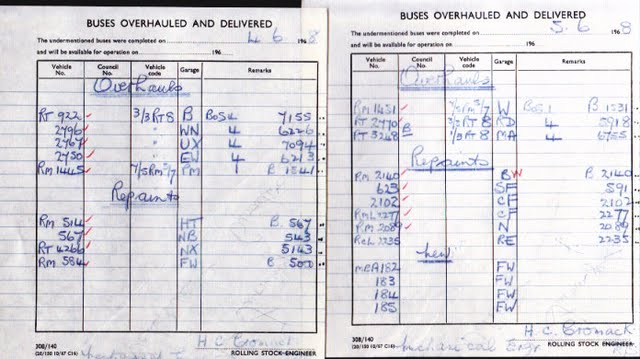 BUSES OVERHAULED AND DELIVERED
The undermentioned buses were completed on 4 6 196 8
and will be available for operation on 196
Vehicle No. Council No. Vehicle code Garage Remarks
Overhauls
RT 922 3/3 RT 8 B BOS 4 7155
2796 " WN 4 6226
2767 " UX 4 7094
2750 " EW 4 6213
RM 1445 7/5 RM 3/7 PM 1 B 1341
Repaints
RM 514 HT B 567
567 NB 543
RT 4266 NX 5143
RM 584 FW B 500
308/140
H. C. Cromack
ROLLING STOCK ENGINEER
BUSES OVERHAULED AND DELIVERED
The undermentioned buses were completed on 5. 6 196 8
and will be available for operation on 196
Vehicle No. Council No. Vehicle code Garage Remarks
Overhauls
RM 1451 W BOS 1 B 1331
RT 2770 RT 8 RD 4 5918
RT 3248 B RT 8 MA 4 6755
Repaints
RM 2140 BW B 2140
623 SF 591
2102 CF 2102
RML 2277 CF 2277
RM 2089 N 2089
RCL 2235 RE 2235
New
MBA 182 FW
183 FW
184 FW
185 FW
308/140
H. C. Cromack
Mechanical Engr
ROLLING STOCK ENGINEER